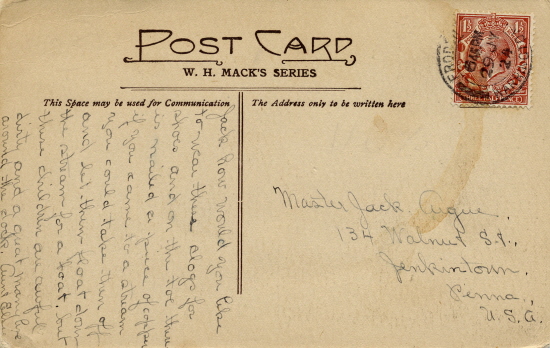 POST CARD
W. H. MACK'S SERIES
This Space may be used for Communication
The Address only to be written here
1½ 1½
24
Jack how would you like
to wear these clogs for
shoes and on the toe there
is nailed a piece of copper
if you came to a stream
you could take them off
and let them float down
the stream for a boat. but
these children are awful
dirty and a great many live
around the dock. Aunt
Master Jack
134 Walnut St.,
Jenkintown,
Penna.,
U.S.A.